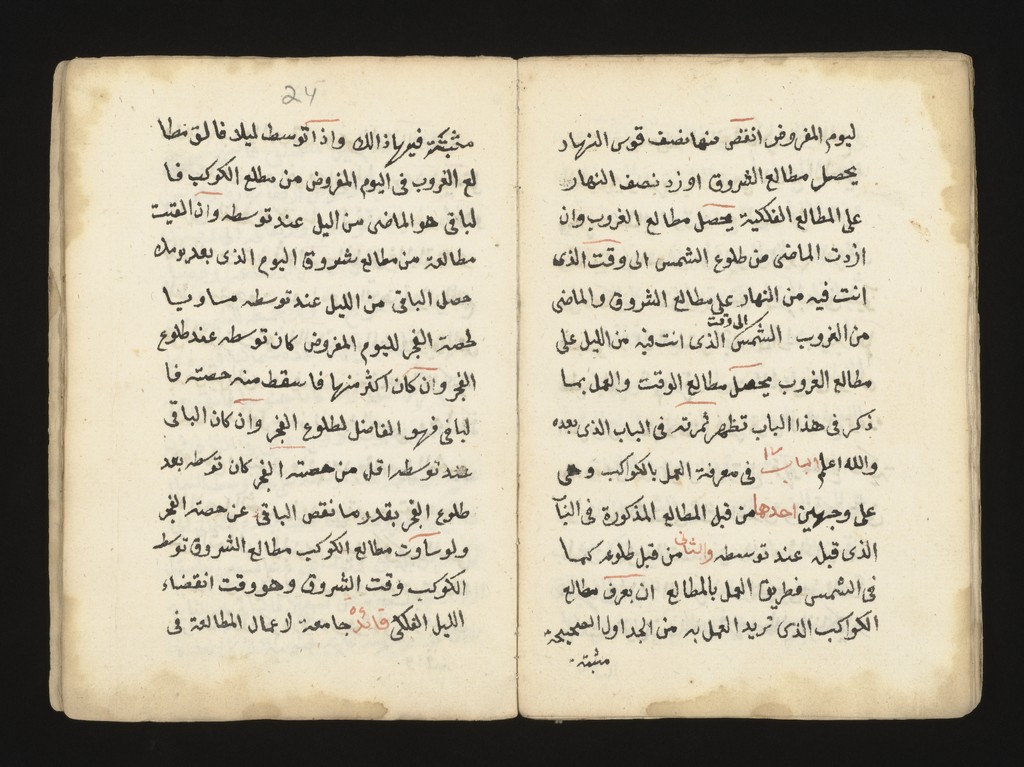 ليوم المفروض انقص منها نصف قوس النهار
يحصل مطالع الشروق اوزد نصف النهار
على المطالع الفلكية يحصل مطالع الغروب وان
ازدت الماضى من طلوع الشمس الى وقت الذى
انت فيه من النهار على مطالع الشروق والماضى
من الغروب الشمس الى وقت الذى انت فيه من الليل على
مطالع الغروب يحصل مطالع الوقت والعمل بما
ذكر فى هذا الباب تظهر ثمرته فى الباب الذى بعده
والله اعلم الباب ١٢ فى معرفة العمل بالكواكب وهى
على وجهين احدهما من قبل المطالع المذكورة فى البآ
الذى قبله عند توسطه والثانى من قبل طلوعه كما
فى الشمس فطريق العمل بالمطالع ان يعرف مطالع
الكواكب الذى تريد العمل به من الجداول الصحيحة
مثبتة
24
مثبتكة فيها ذالك واذا توسط ليلا فالق مطا
لع الغروب فى اليوم المفروض من مطلع الكوكب فا
لباقى هو الماضى من اليل عند توسطه وان القيت
مطالعه من مطالع شروق اليوم الذى بعد يومك
حصل الباقى من الليل عند توسطه مساويا
لحصة الفجر لليوم المفروض كان توسطه عند طلوع
الفجر وان كان اكثر منها فاسقط منه حصته فا
لباقى فهو الفاضل لطلوع الفجر وان كان الباقى
عند توسطه اقل من حصته الفجر كان توسطه بعد
طلوع الفجر بقدر ما نقص الباقى عن حصته الفجر
ولو ساوت مطالع الكوكب مطالع الشروق توسط
الكوكب وقت الشروق وهو وقت انقضاء
الليل الفلكى فائدة جامعة لاعمال المطالعة فى